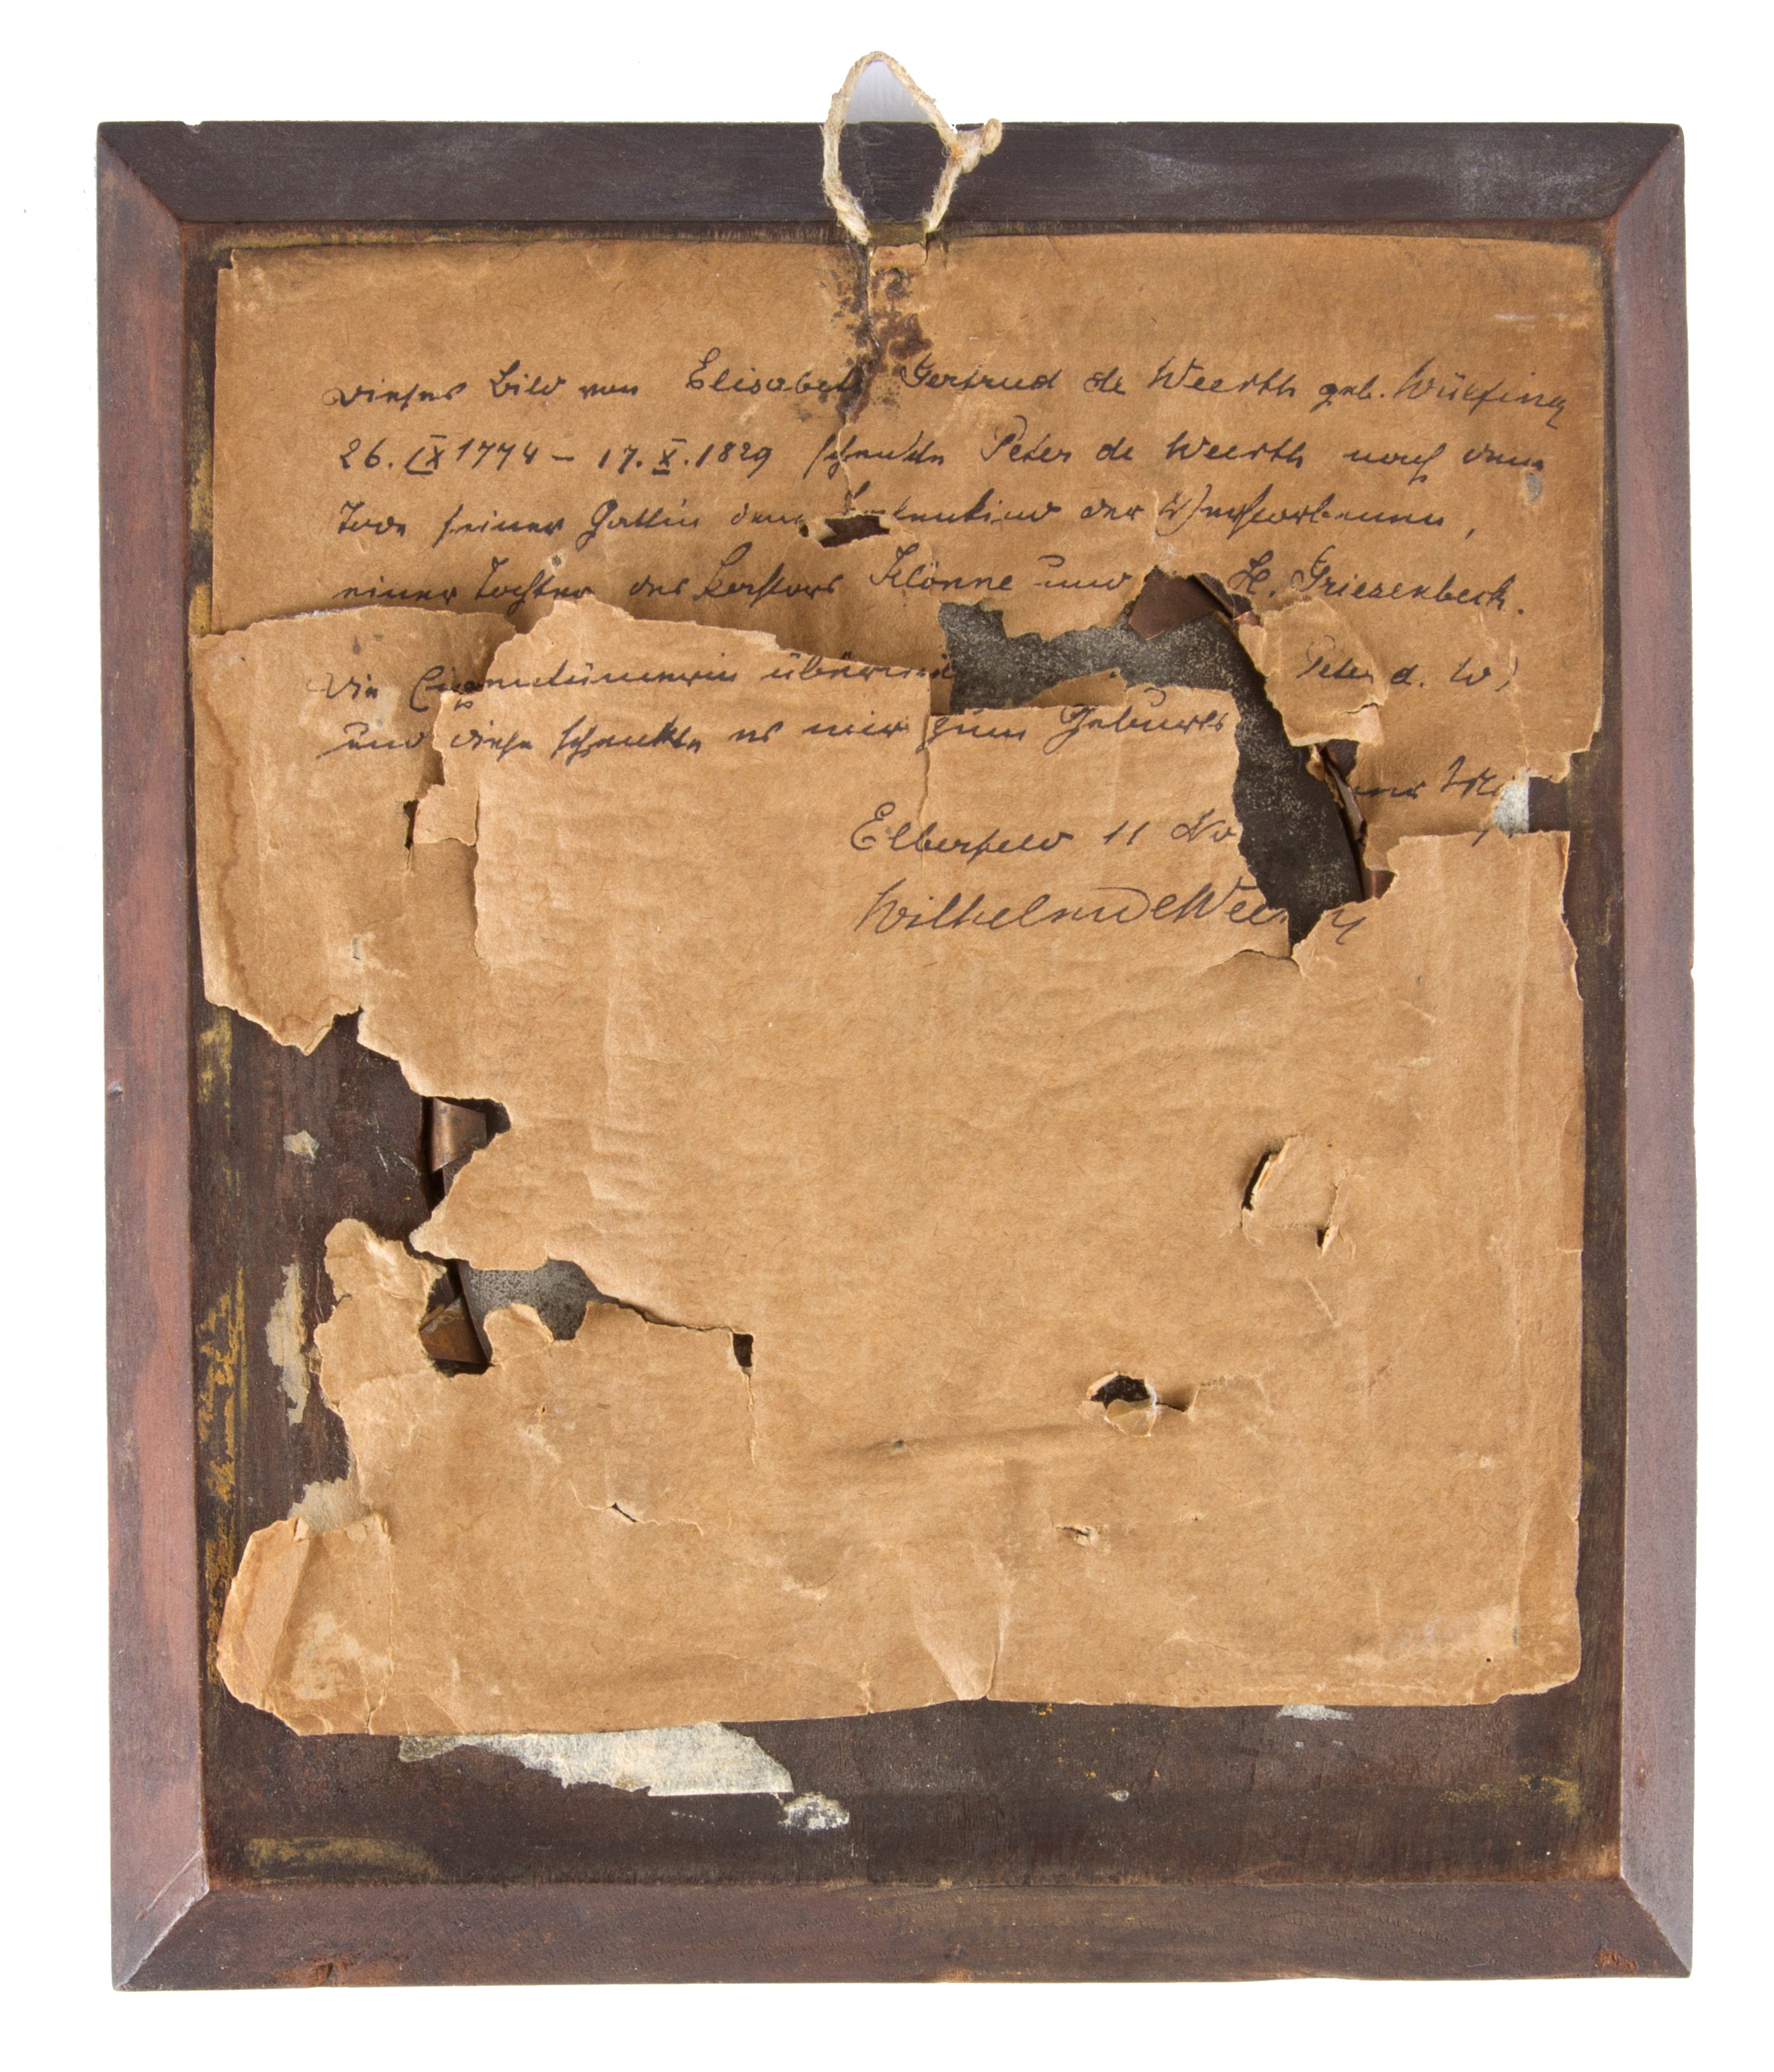 Dieses Bild von Elisabeth Gertrud de Weerth geb. Wülfing
26. IX 1774 – 17. X. 1829 schenkte Peter de Weerth nach dem
Tode seiner Gattin dem kenkind der Verstorbenen,
einer Tochter des Pastors Klönne und H. Griesenbeck.
Die Eigentümerin Peter d. W
und diese schenkte es mir zum Geburts
Elberfeld 11 No
Wilhelm de Weerth